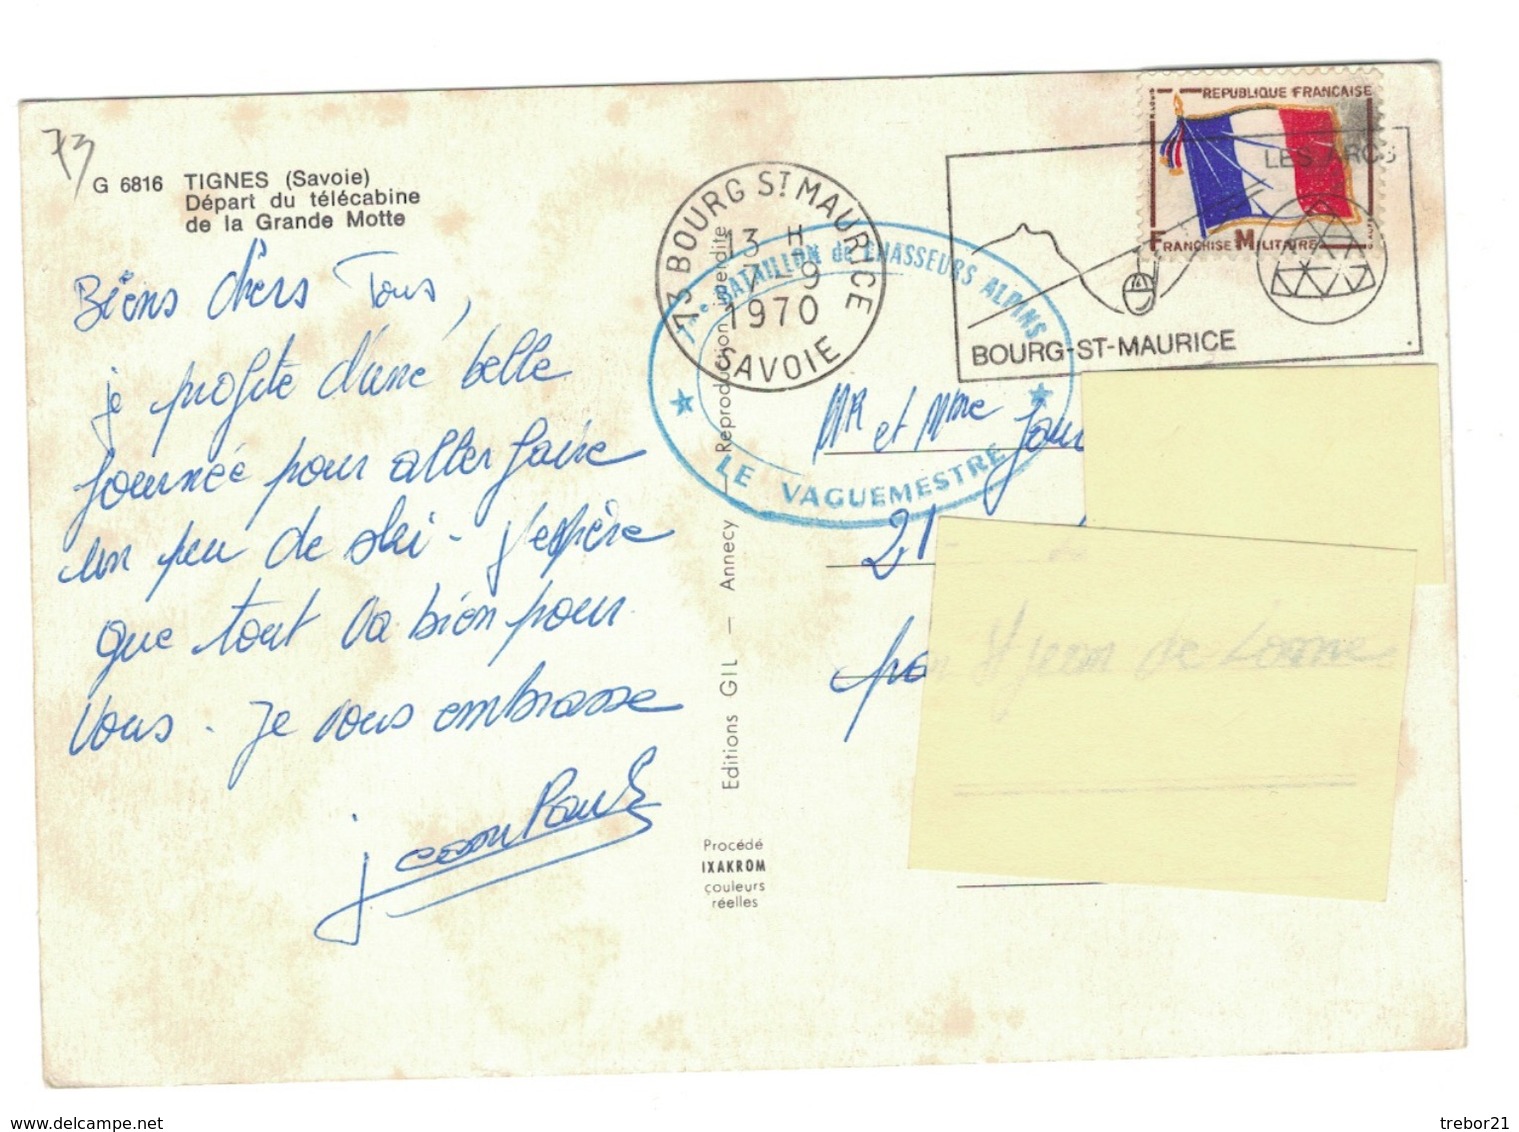 73
G 6816 TIGNES (Savoie)
Départ du télécabine
de la Grande Motte
Biens chers Tous,
je profite d'une belle
journée pour aller faire
un peu de ski - J'espère
que tout va bien pour
vous. Je vous embrasse
Jean Paul
REPUBLIQUE FRANCAISE
FRANCHISE MILITAIRE
LES ARCS
BOURG-ST-MAURICE
73 BOURG ST MAURICE
13 H
17-9
1970
SAVOIE
7me BATAILLON de CHASSEURS ALPINS
LE VAGUEMESTRE
MR et Mme
21
Editions GIL — Annecy — Reproduction interdite
Procédé
IXAKROM
couleurs
réelles
delcampe.net
trebor21